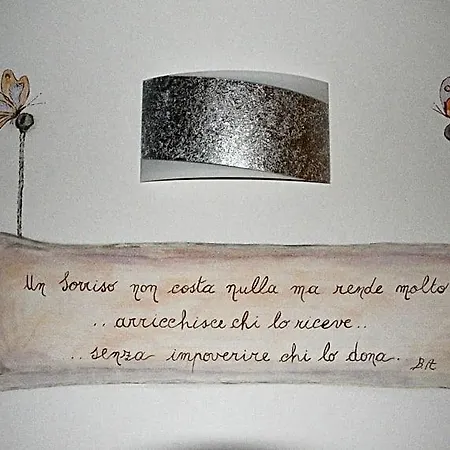 Un Sorriso non costa nulla ma rende molto
..arricchisce chi lo riceve..
..senza impoverire chi lo dona.